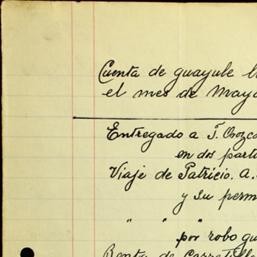 Cuenta de guayule
el mes de Mayo
Entregado a T. Orozco
en dos parti
Viaje de Patricio. A.
y su perm
" " "
por robo gu
Renta de Carretill